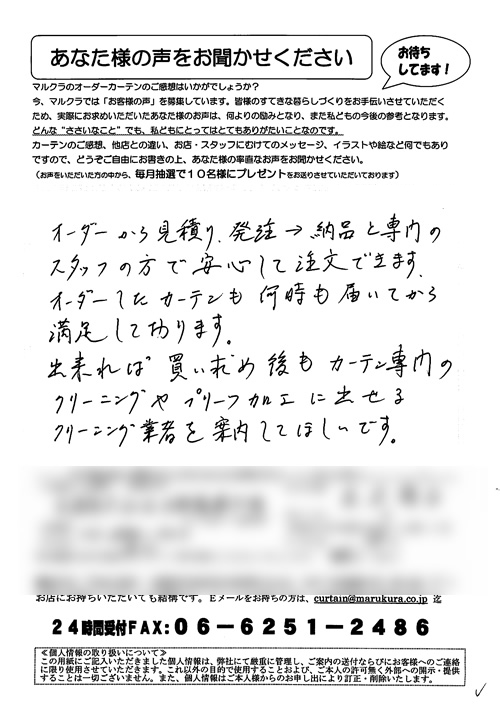 あなた様の声をお聞かせください
お待ち
してます!
マルクラのオーダーカーテンのご感想はいかがでしょうか？
今、マルクラでは「お客様の声」を募集しています。皆様のすてきな暮らしづくりをお手伝いさせていただく
ため、実際にお求めいただいたあなた様のお声は、何よりの励みとなり、また私どもの今後の参考となります。
どんな“ささいなこと”でも、私どもにとってはとてもありがたいことなのです。
カーテンのご感想、他店との違い、お店・スタッフにむけてのメッセージ、イラストや絵など何でもあり
ですので、どうぞご自由にお書きの上、あなた様の率直なお声をお聞かせください。
（お声をいただいた方の中から、毎月抽選で１０名様にプレゼントをお送りさせていただいております）
オーダーから見積り、発注→納品と専門の
スタッフの方で安心して注文できます。
オーダーしたカーテンも何時も届いてから
満足して切ります。
出来れば買い求め後もカーテン専門の
クリーニングやプリーツ加工に出せる
クリーニング業者を案内してほしいです。
お店にお持ちいただいても結構です。Ｅメールをお持ちの方は、curtain@marukura.co.jp 迄
２４時間受付ＦＡＸ：０６－６２５１－２４８６
≪個人情報の取り扱いについて≫
この用紙にご記入いただきました個人情報は、弊社にて厳重に管理し、ご案内の送付ならびにお客様へのご連絡
に限り使用させていただきます。これ以外の目的で使用することおよび、ご本人の許可無く外部への開示・提供
することは一切ございません。また、個人情報はご本人様からのお申し出により訂正・削除いたします。